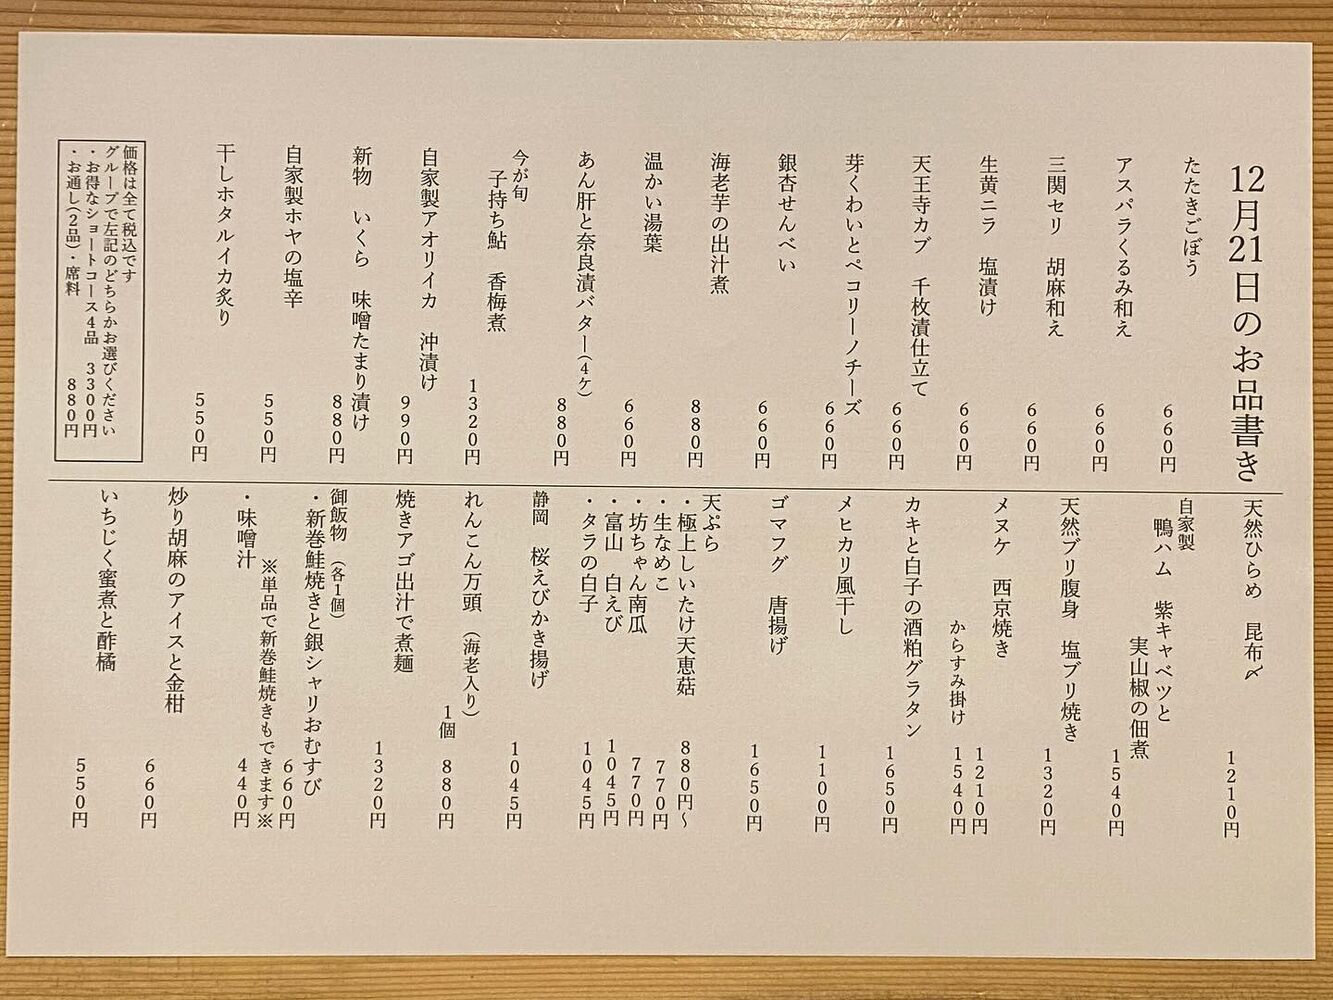 12月21日のお品書き
たたきごぼう 660円
アスパラくるみ和え 660円
三関セリ 胡麻和え 660円
生黄ニラ 塩漬け 660円
天王寺カブ 千枚漬仕立て 660円
芽くわいとペコリーノチーズ 660円
銀杏せんべい 660円
海老芋の出汁煮 880円
温かい湯葉 660円
あん肝と奈良漬バター(4ケ) 880円
今が旬
子持ち鮎 香梅煮 1320円
自家製アオリイカ 沖漬け 990円
新物 いくら 味噌たまり漬け 880円
自家製ホヤの塩辛 550円
干しホタルイカ炙り 550円
価格は全て税込です
グループで左記のどちらかお選びください
・お得なショートコース4品 3300円
・お通し(2品)・席料 880円
天然ひらめ 昆布〆 1210円
自家製
鴨ハム 紫キャベツと
実山椒の佃煮 1540円
天然ブリ腹身 塩ブリ焼き 1320円
メヌケ 西京焼き 1210円
からすみ掛け 1540円
カキと白子の酒粕グラタン 1650円
メヒカリ風干し 1100円
ゴマフグ 唐揚げ 1650円
天ぷら
・極上しいたけ天恵菇 880円〜
・生なめこ 770円
・坊ちゃん南瓜 770円
・富山 白えび 1045円
・タラの白子 1045円
静岡 桜えびかき揚げ 1045円
れんこん万頭 (海老入り)
1個 880円
焼きアゴ出汁で煮麺 1320円
御飯物 (各1個)
・新巻鮭焼きと銀シャリおむすび
660円
※単品で新巻鮭焼きもできます※
・味噌汁 440円
炒り胡麻のアイスと金柑 660円
いちじく蜜煮と酢橘 550円